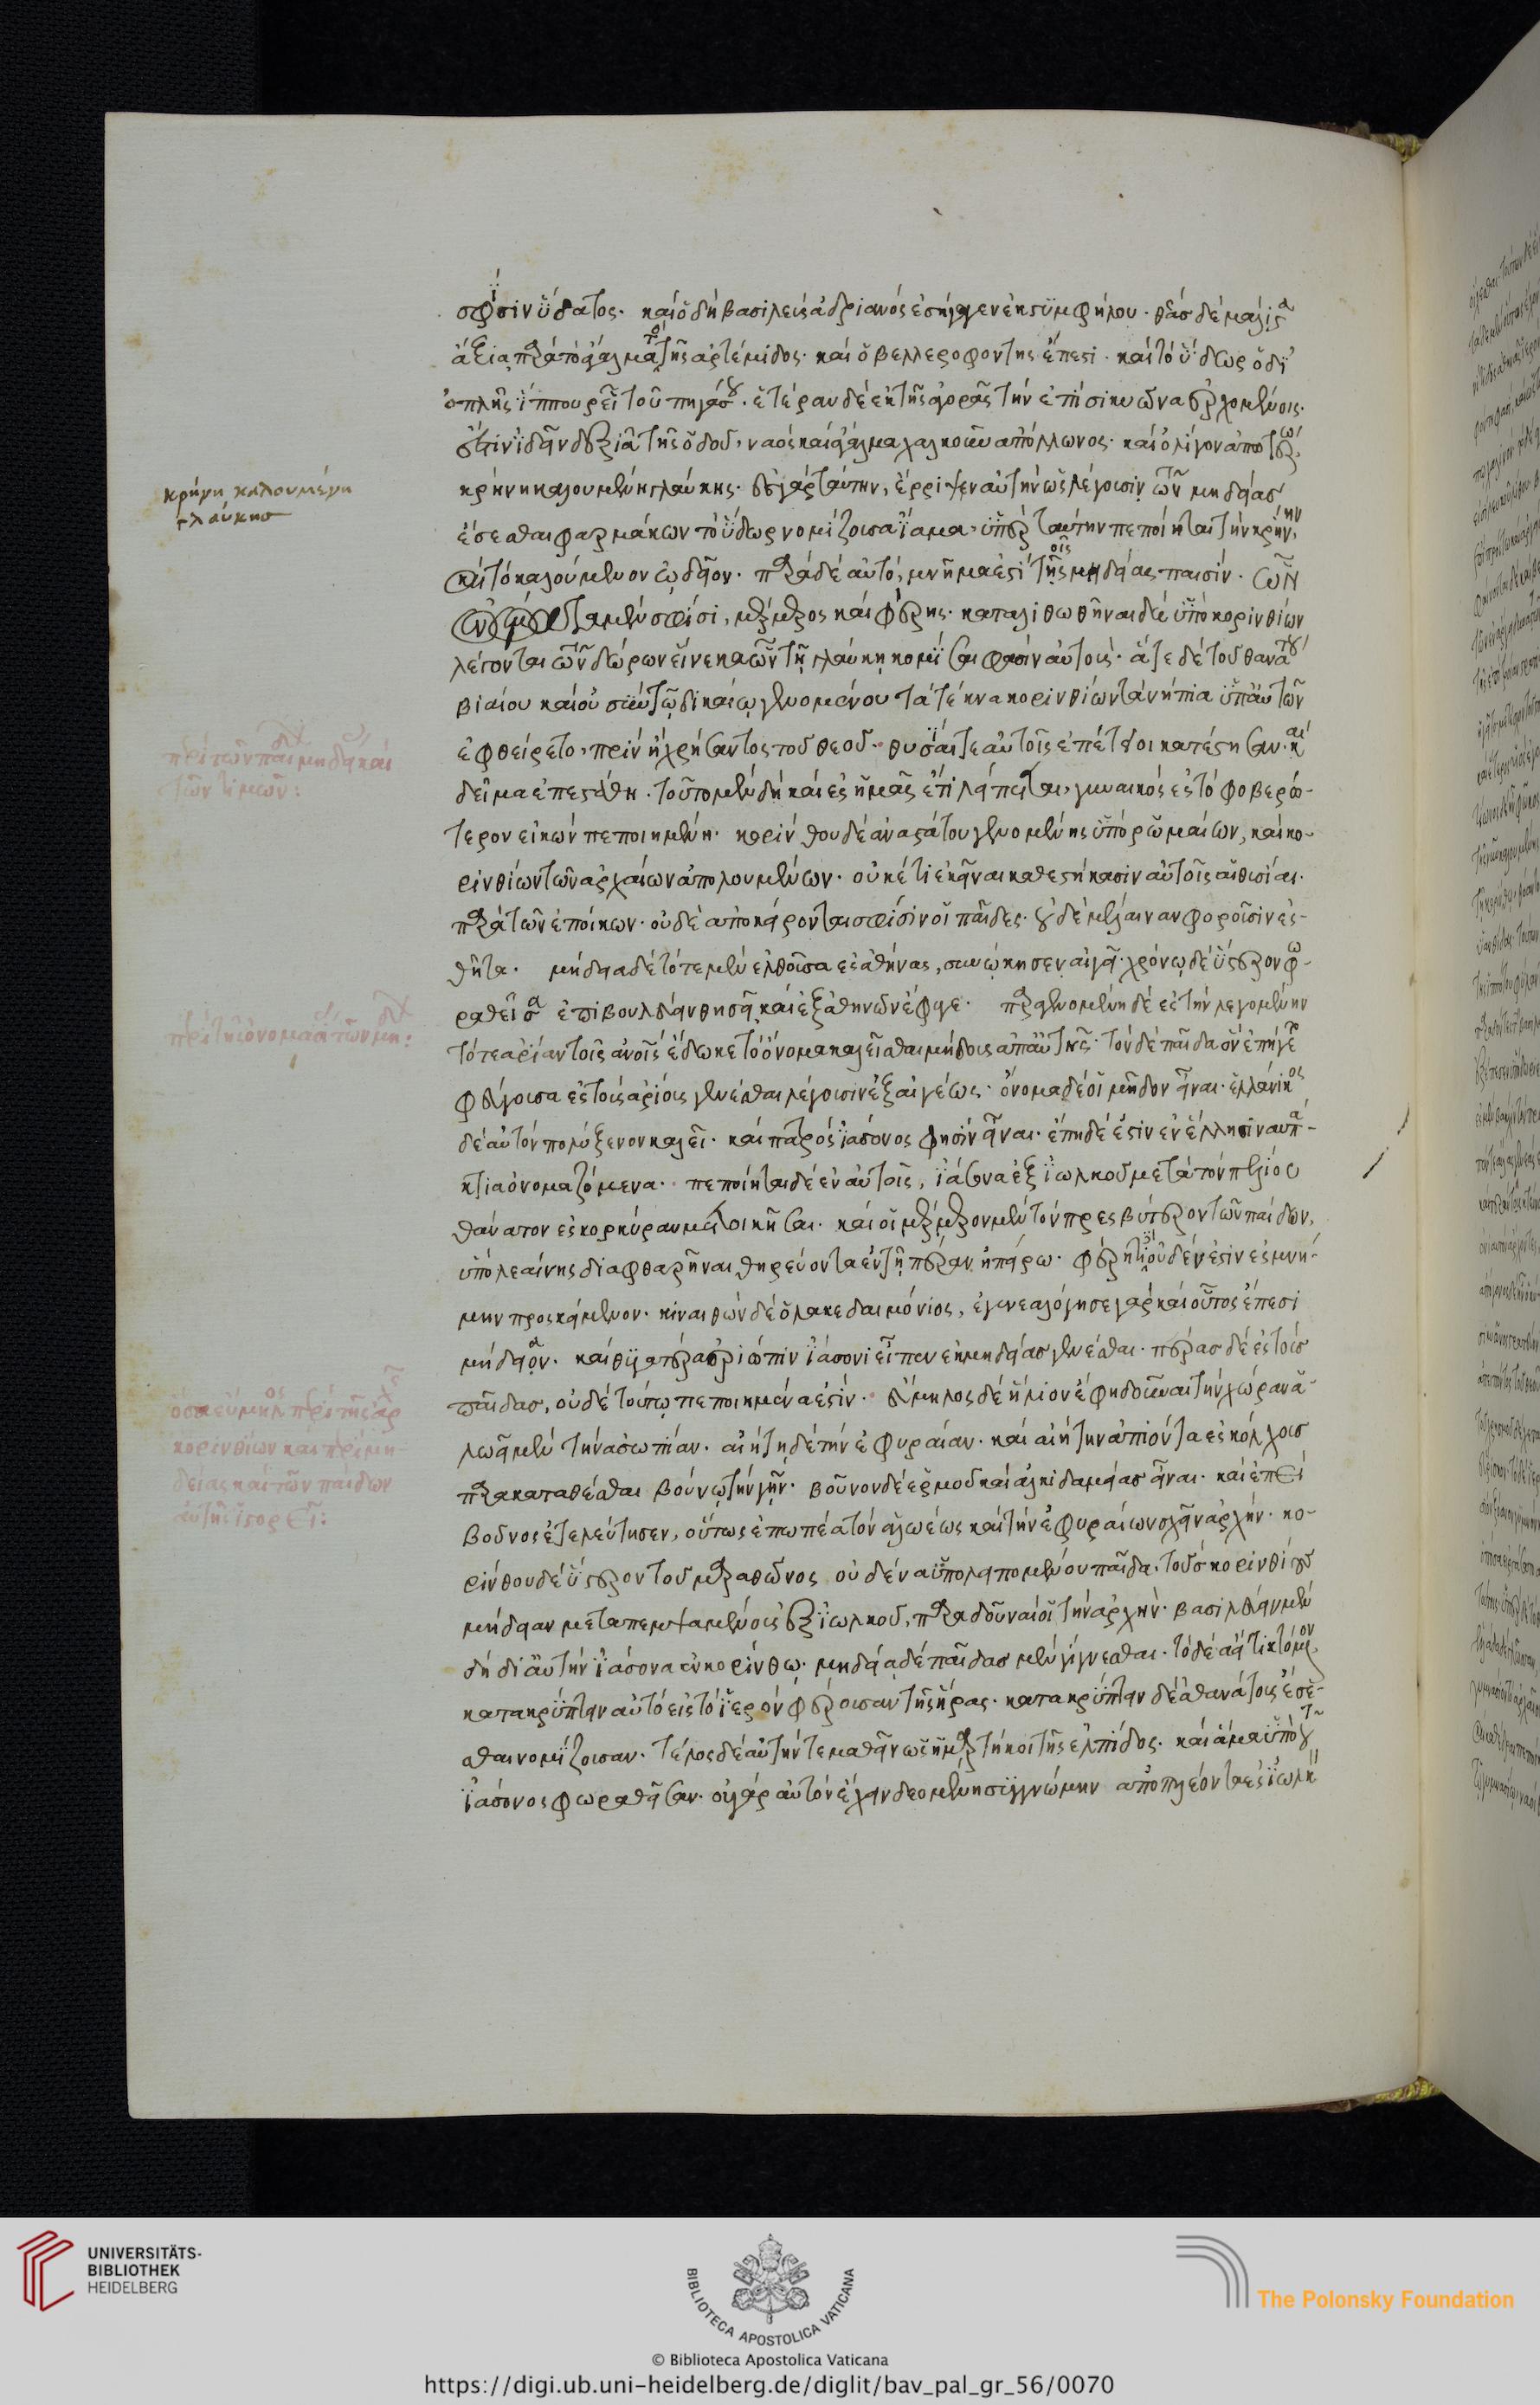 σφίσιν ὕδατος. καὶ ὃ δὴ βασιλεὺς ἀδριανὸς ἐσήγαγεν ἐκ στυμφήλου. θέας δὲ μάλιστα
ἀξία παρὰ τὸ ἄγαλμα τὸ τῆς ἀρτέμιδος. καὶ ὁ βελλεροφόντης ἔπεστι. καὶ τὸ ὕδωρ ὃ δι'
ὁπλῆς ἵππου ῥεῖ τοῦ πηγάσου. ἑτέραν δὲ ἐκ τῆς ἀγορᾶς τὴν ἐπὶ σικυῶνα ἐρχομένοις.
ἔστιν ἰδεῖν ἐν δεξιᾷ τῆς ὁδοῦ, ναὸς καὶ ἄγαλμα χαλκοῦν ἀπόλλωνος. καὶ ὀλίγον ἀπωτέρω
κρήνη καλουμένη γλαύκης. ἐς γὰρ ταύτην, ἔρριψεν αὑτὴν ὡς λέγουσιν τῶν μηδείας
ἔσεσθαι φαρμάκων τὸ ὕδωρ νομίζουσα ἴαμα. ὑπὲρ ταύτην πεποίηται τὴν κρήνην
καὶ τὸ καλούμενον ᾠδεῖον. παρὰ δὲ αὐτό, μνῆμά ἐστι τοῖς μηδείας παισίν. ὧν
ὀνόματα μέν σφισι, μέρμερος καὶ φέρης. καταλιθωθῆναι δὲ ὑπὸ κορινθίων
λέγονται τῶν δώρων εἵνεκα ὧν τῇ γλαύκῃ κομίσαι φασὶν αὐτούς. ἅτε δὲ τοῦ θανάτου
βιαίου καὶ οὐ σὺν τῷ δικαίῳ γενομένου τὰ τέκνα κορινθίων τὰ νήπια ὑπ' αὐτῶν
ἐφθείρετο, πρὶν ἢ χρήσαντος τοῦ θεοῦ. θυσίαι τε αὐτοῖς ἐπέτειοι κατέστησαν. καὶ
δεῖμα ἐπεστάθη. τοῦτο μὲν δὴ καὶ ἐς ἡμᾶς ἔτι λείπεται, γυναικὸς ἐς τὸ φοβερώ-
τερον εἰκὼν πεποιημένη. κορίνθου δὲ ἀναστάτου γενομένης ὑπὸ ῥωμαίων, καὶ κο-
ρινθίων τῶν ἀρχαίων ἀπολουμένων. οὐκέτι ἐκεῖναι καθεστήκασιν αὐτοῖς αἱ θυσίαι.
παρὰ τῶν ἐποίκων. οὐδὲ ἀποκείρονται σφίσιν οἱ παῖδες. οὐδὲ μέλαιναν φοροῦσιν ἐσ-
θῆτα. μήδεια δὲ τότε μὲν ἐλθοῦσα ἐς ἀθήνας, συνῴκησεν αἰγεῖ. χρόνῳ δὲ ὕστερον φω-
ραθεῖσα ἐπιβουλεύειν θησεῖ καὶ ἐξ ἀθηνῶν ἔφυγε. παραγενομένη δὲ ἐς τὴν λεγομένην
τότε ἀρίαν τοῖς ἀνοις ἔδωκε τὸ ὄνομα καλεῖσθαι μήδους ἀπ' αὐτῆς. τὸν δὲ παῖδα ὃν ἐπήγετο
φεύγουσα ἐς τοὺς ἀρίους γενέσθαι λέγουσιν ἐξ αἰγέως. ὄνομα δέ οἱ μῆδον εἶναι. ἑλλάνικος
δὲ αὐτὸν πολύξενον καλεῖ. καὶ πατρὸς ἰάσονος φησὶν εἶναι. ἔπη δέ ἐστιν ἐν ἕλλησι ναυπά-
κτια ὀνομαζόμενα. πεποίηται δὲ ἐν αὐτοῖς, ἰάσονα ἐξ ἰωλκοῦ μετὰ τὸν πελίου
θάνατον ἐς κορκύραν μετοικῆσαι. καί οἱ μέρμερον μὲν τὸν πρεσβύτερον τῶν παίδων,
ὑπὸ λεαίνης διαφθαρῆναι θηρεύοντα ἐν τῇ πέραν ἠπείρω. φέρητι δὲ οὐδέν ἐστιν ἐς μνή-
μην προσκείμενον. κιναίθων δὲ ὁ λακεδαιμόνιος, ἐγενεαλόγησε γὰρ καὶ οὗτος ἔπεσι
μήδειον. καὶ θυγατέρα ἐριῶπιν ἰάσονι εἶπεν ἐκ μηδείας γενέσθαι. πέρας δὲ ἐς τοὺς
παῖδας, οὐδὲ τούτῳ πεποιημένα ἐστίν. εὔμηλος δὲ ἥλιον ἔφη δοῦναι τὴν χώραν ἀ-
λωεῖ μὲν τὴν ἀσωπίαν. αἰήτῃ δὲ τὴν ἐφυραίαν. καὶ αἰήτην ἀπιόντα ἐς κόλχους
παρακαταθέσθαι βούνῳ τὴν γῆν. βοῦνον δὲ ἑρμοῦ καὶ ἀλκιδαμείας εἶναι. καὶ ἐπεὶ
βοῦνος ἐτελεύτησεν, οὕτως ἐπωπέα τὸν ἀλωέως καὶ τὴν ἐφυραίων σχεῖν ἀρχήν. κο-
ρίνθου δὲ ὕστερον τοῦ μαραθῶνος οὐδένα ὑπολειπομένου παῖδα. τοὺς κορινθίους
μήδειαν μεταπεμψαμένους ἐξ ἰωλκοῦ, παραδοῦναί οἱ τὴν ἀρχήν. βασιλεύειν μὲν
δὴ δι' αὐτὴν ἰάσονα ἐν κορίνθῳ. μηδείᾳ δὲ παῖδας μὲν γίγνεσθαι. τὸ δὲ ἀεὶ τικτόμενον
κατακρύπτειν αὐτὸ εἰς τὸ ἱερὸν φέρουσαν τῆς ἥρας. κατακρύπτειν δὲ ἀθανάτους ἔσε-
σθαι νομίζουσαν. τέλος δὲ αὐτήν τε μαθεῖν ὡς ἡμαρτήκοι τῆς ἐλπίδος. καὶ ἅμα ὑπὸ τοῦ
ἰάσονος φωραθεῖσαν. οὐ γὰρ αὐτὸν ἔχειν δεομένῃ συγγνώμην ἀποπλέοντα ἐς ἰωλκὸν
κρήνη καλουμένη
γλαύκησ
περὶ τῶν παίδων μηδείας καὶ
τῶν τιμῶν:
περὶ τῆς ὀνομασίας τῶν μήδων:
ὅσα εὔμηλος περὶ τῆς ἀρχῆς
κορινθίων καὶ περὶ μη-
δείας καὶ τῶν παίδων
αὐτῆς ἱστορεῖ:
UNIVERSITÄTS-
BIBLIOTHEK
HEIDELBERG
BIBLIOTECA APOSTOLICA VATICANA
The Polonsky Foundation
© Biblioteca Apostolica Vaticana
https://digi.ub.uni-heidelberg.de/diglit/bav_pal_gr_56/0070